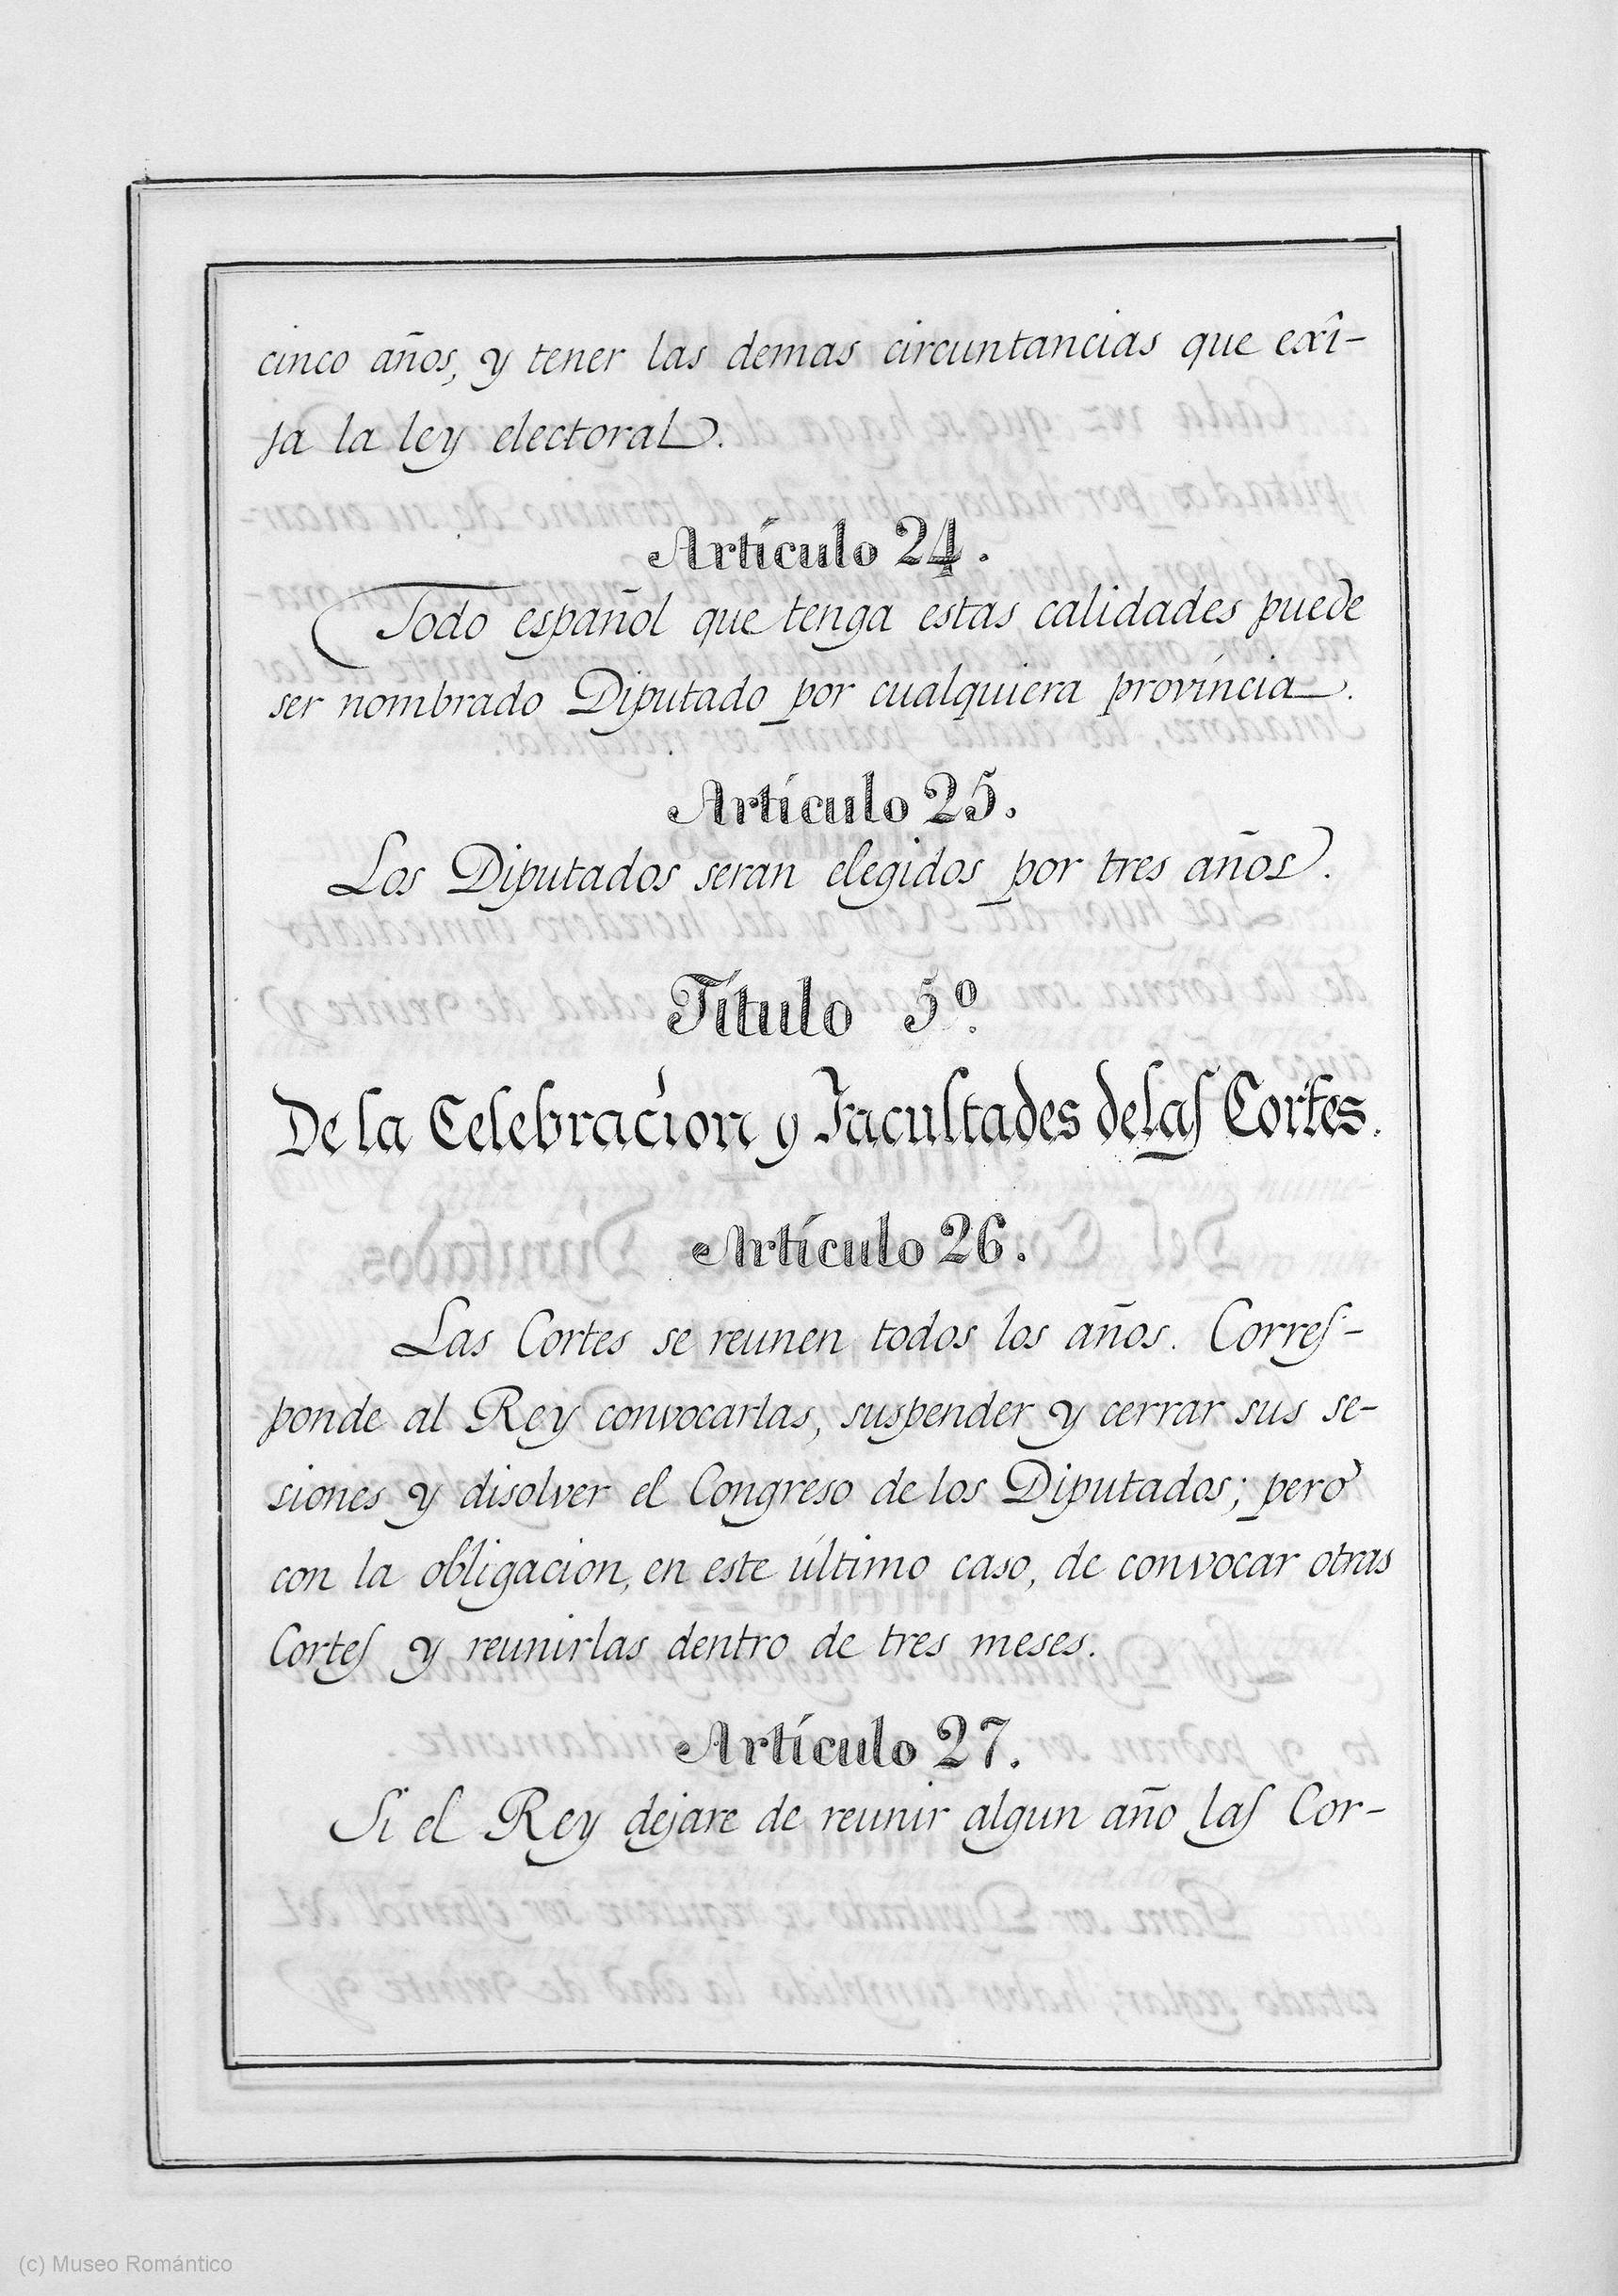 cinco años, y tener las demas circuntancias que exî-
ja la ley electoral.
Artículo 24.
Todo español que tenga estas calidades puede
ser nombrado Diputado por cualquiera província.
Artículo 25.
Los Diputados seran elegidos por tres años.
Título 5º.
De la Celebracíon y Facultades de las Cortes.
Artículo 26.
Las Cortes se reunen todos los años. Corres-
ponde al Rey convocarlas, suspender y cerrar sus se-
siones y disolver el Congreso de los Diputados; pero
con la obligacion, en este último caso, de convocar otras
Cortes y reunirlas dentro de tres meses.
Artículo 27.
Si el Rey dejare de reunir algun año las Cor-
(c) Museo Romántico